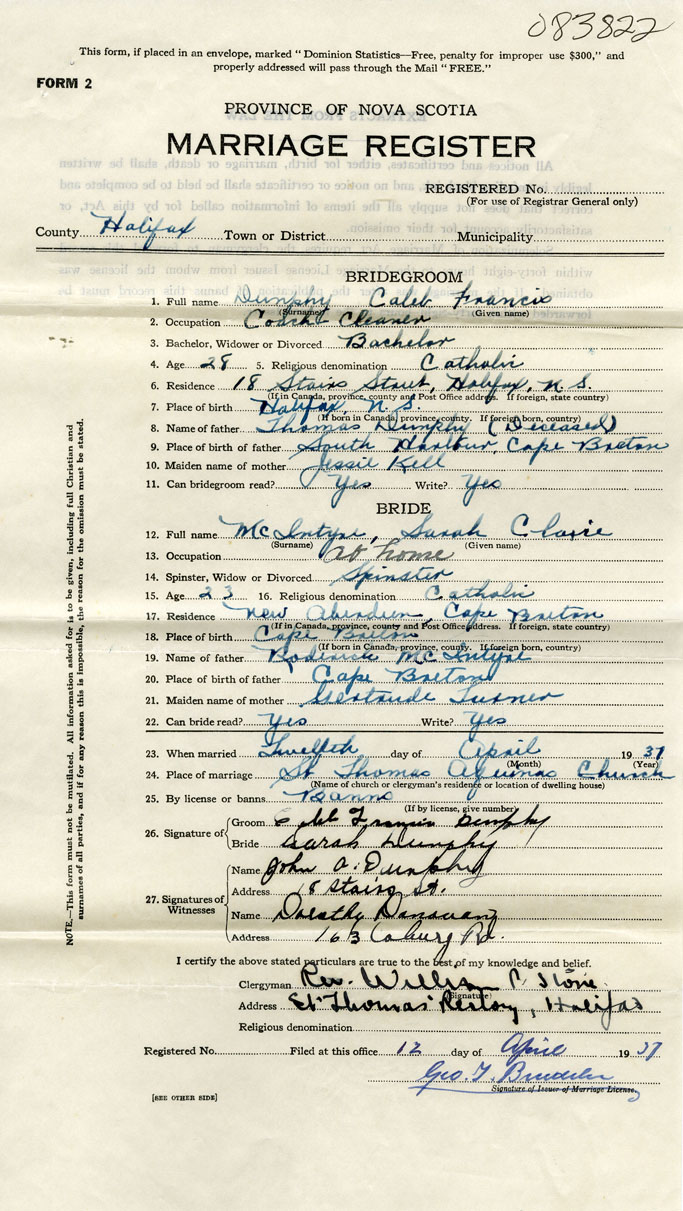 083822
This form, if placed in an envelope, marked "Dominion Statistics—Free, penalty for improper use $300," and
properly addressed will pass through the Mail "FREE."
FORM 2
PROVINCE OF NOVA SCOTIA
MARRIAGE REGISTER
REGISTERED No.
(For use of Registrar General only)
County Halifax Town or District Municipality
BRIDEGROOM
1. Full name Dunphy Caleb Francis
(Surname) (Given name)
2. Occupation Coach Cleaner
3. Bachelor, Widower or Divorced Bachelor
4. Age 28 5. Religious denomination Catholic
6. Residence 18 Stairs Street, Halifax, N.S.
(If in Canada, province, county and Post Office address. If foreign, state country)
7. Place of birth Halifax, N.S.
(If born in Canada, province, county. If foreign born, country)
8. Name of father Thomas Dunphy (Deceased)
9. Place of birth of father South Harbour, Cape Breton
10. Maiden name of mother Jessie Kell
11. Can bridegroom read? Yes Write? Yes
BRIDE
12. Full name McIntyre, Sarah Claire
(Surname) (Given name)
13. Occupation at home
14. Spinster, Widow or Divorced Spinster
15. Age 23 16. Religious denomination Catholic
17. Residence New Aberdeen, Cape Breton
(If in Canada, province, county and Post Office address. If foreign, state country)
18. Place of birth Cape Breton
(If born in Canada, province, county. If foreign born, country)
19. Name of father Roderick McIntyre
20. Place of birth of father Cape Breton
21. Maiden name of mother Gertrude Turner
22. Can bride read? Yes Write? Yes
23. When married Twelfth day of April 1937
(Month) (Year)
24. Place of marriage St Thomas Aquinas Church
(Name of church or clergyman's residence or location of dwelling house)
25. By license or banns Banns
(If by license, give number)
26. Signature of
Groom Francis Dunphy
Bride Sarah Dunphy
27. Signatures of Witnesses
Name John A. Dunphy
Address 18 Stairs St.
Name Dorothy
Address 163 Coburg Rd.
I certify the above stated particulars are true to the best of my knowledge and belief.
Clergyman Rev. William P. Stone
(Signature)
Address St Thomas' Rectory, Halifax
Religious denomination
Registered No. Filed at this office 12 day of April 1937
Geo. T.
Signature of Issuer of Marriage License.
[SEE OTHER SIDE]
NOTE.—This form must not be mutilated. All information asked for is to be given, including full Christian and
surnames of all parties, and if for any reason this is impossible, the reason for the omission must be stated.